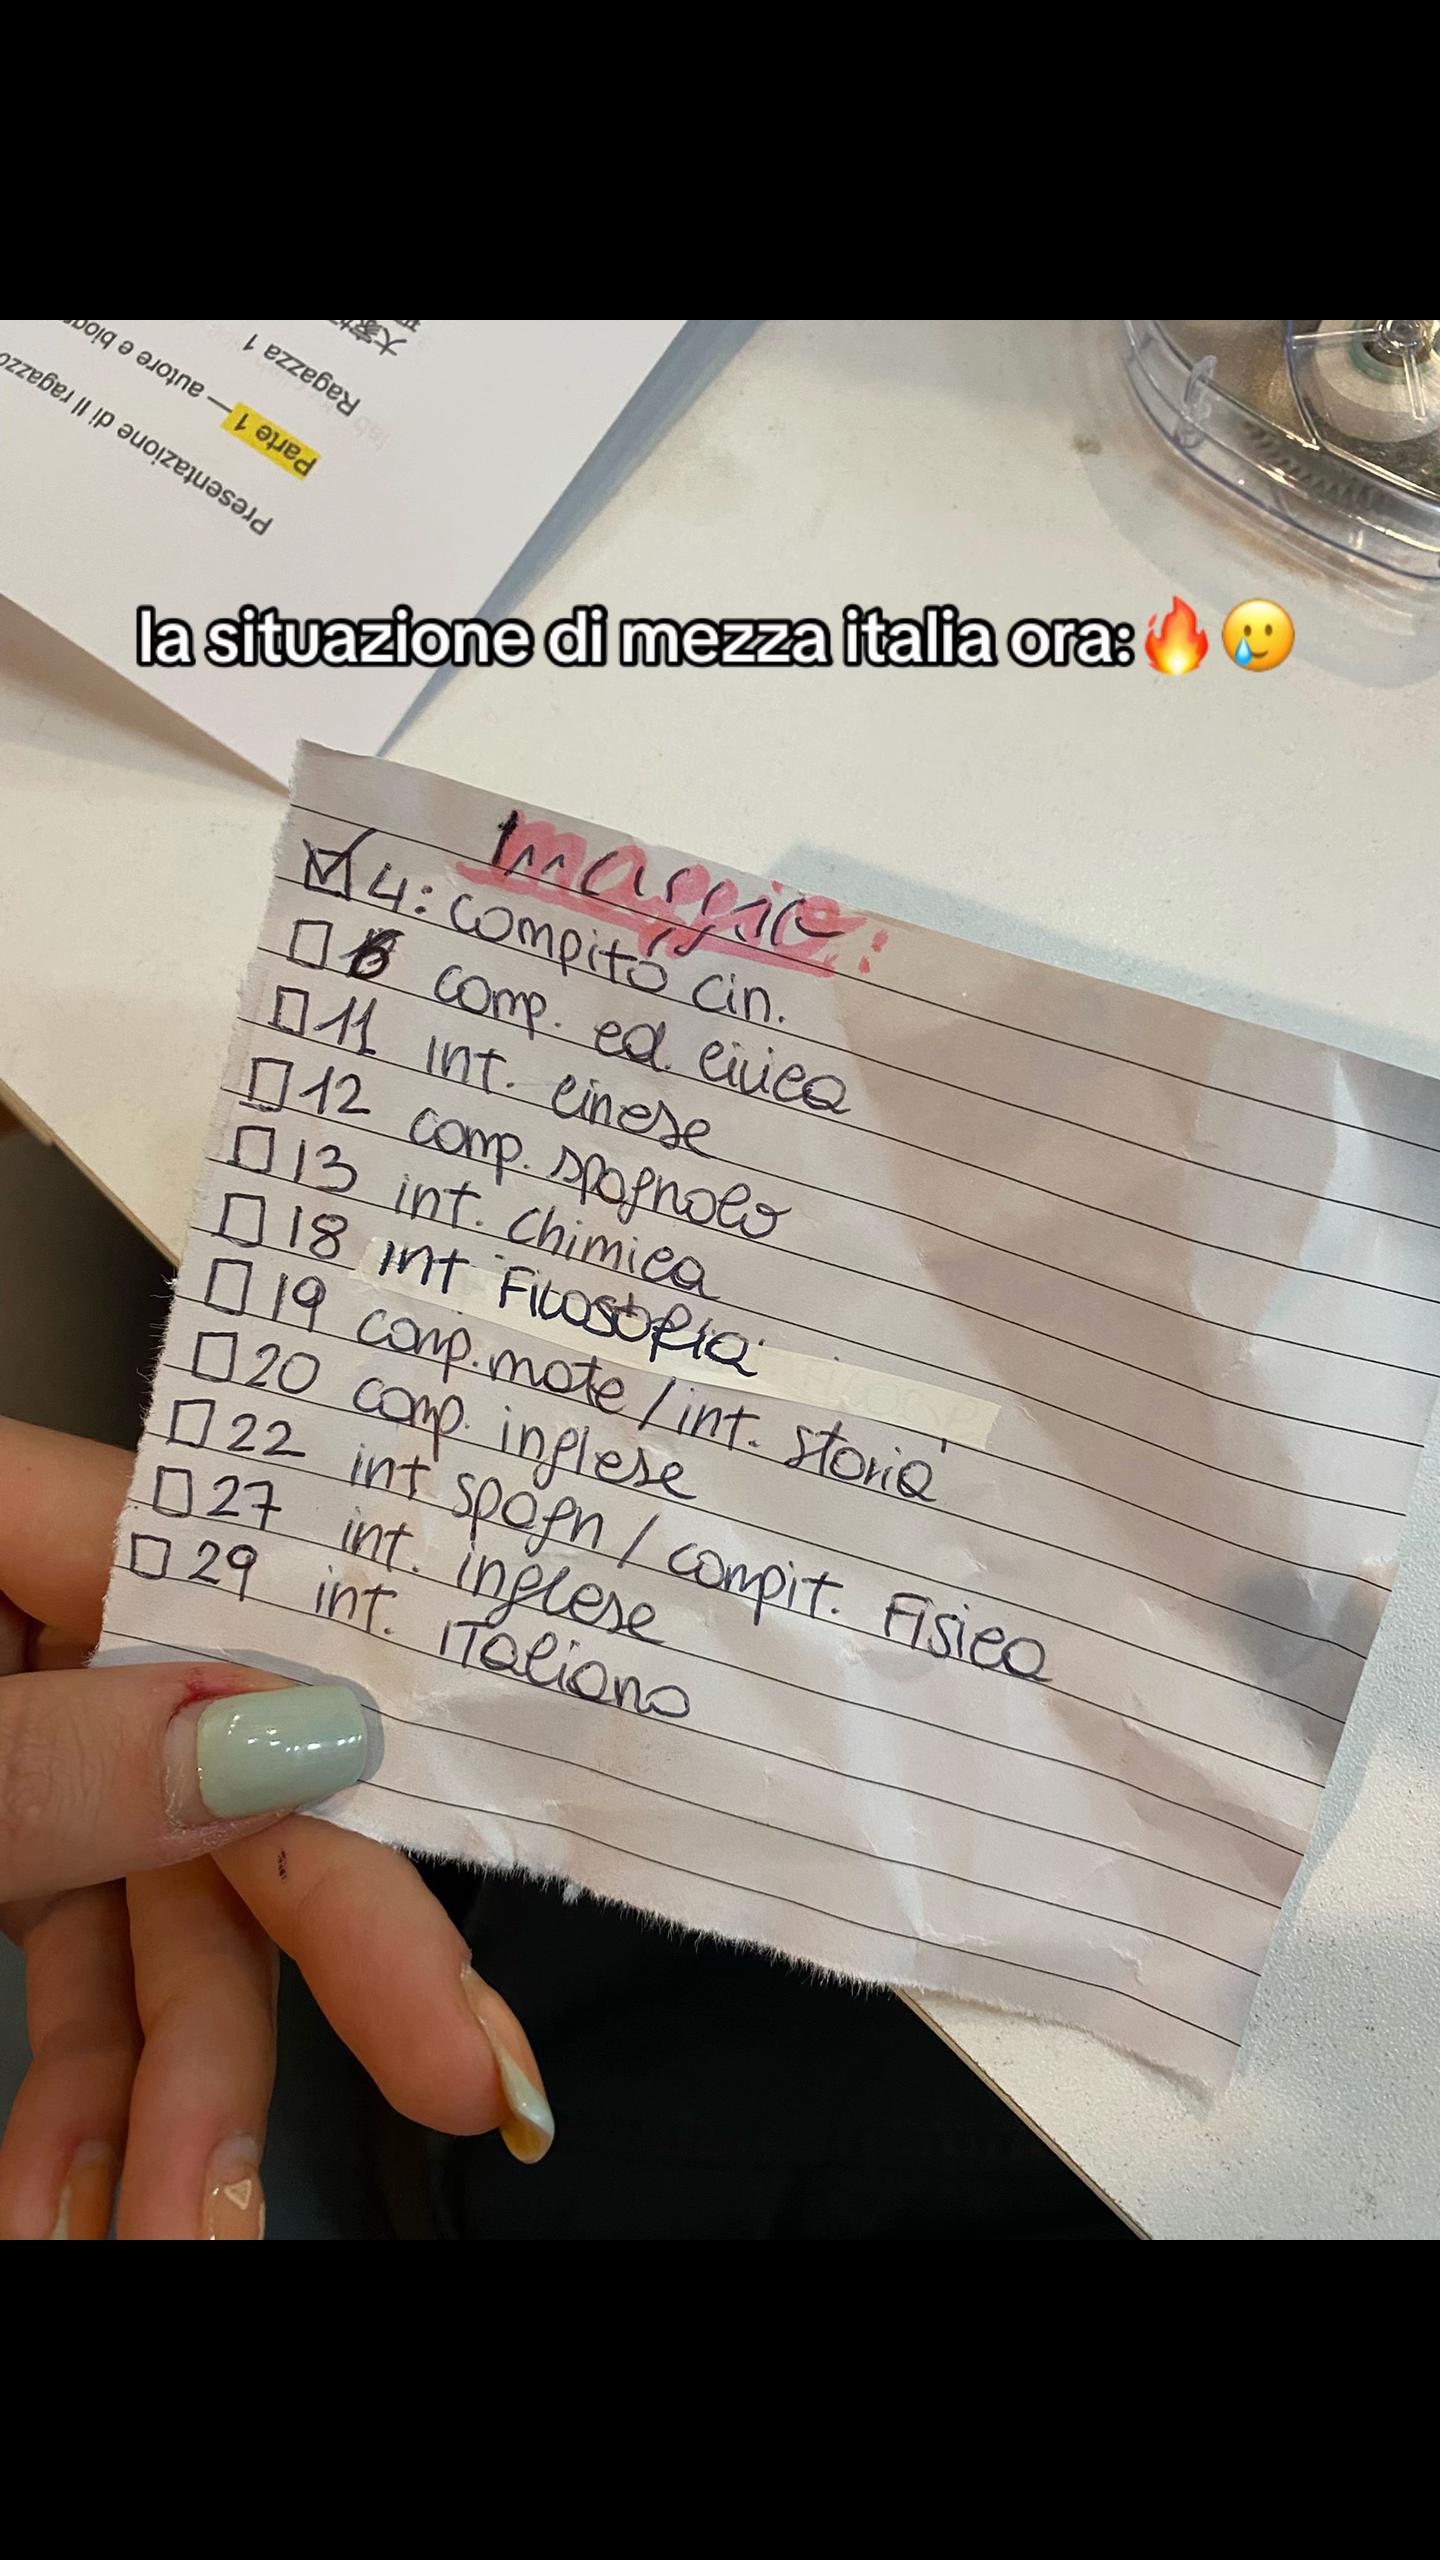 Presentazione di Il ragazzo
Parte 1 — autore e blog
Ragazza 1
大家
la situazione di mezza italia ora:🔥🥲
maggio:
☑ 4: compito cin.
☐ comp. ed. civica
☐ 11 int. cinese
☐ 12 comp. spagnolo
☐ 13 int. chimica
☐ 18 int Filosofia
☐ 19 comp. mate / int. storia
☐ 20 comp. inglese
☐ 22 int spagn / compit. Fisica
☐ 27 int. inglese
☐ 29 int. ITaliano